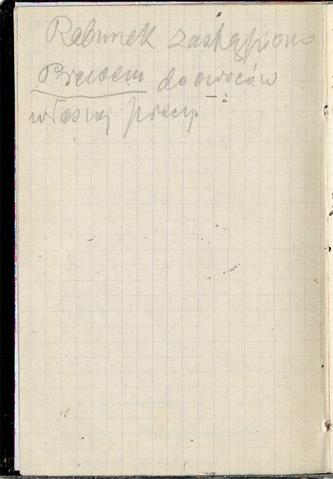 Rabunek zastąpiono
Prawem do owoców
własnej pracy